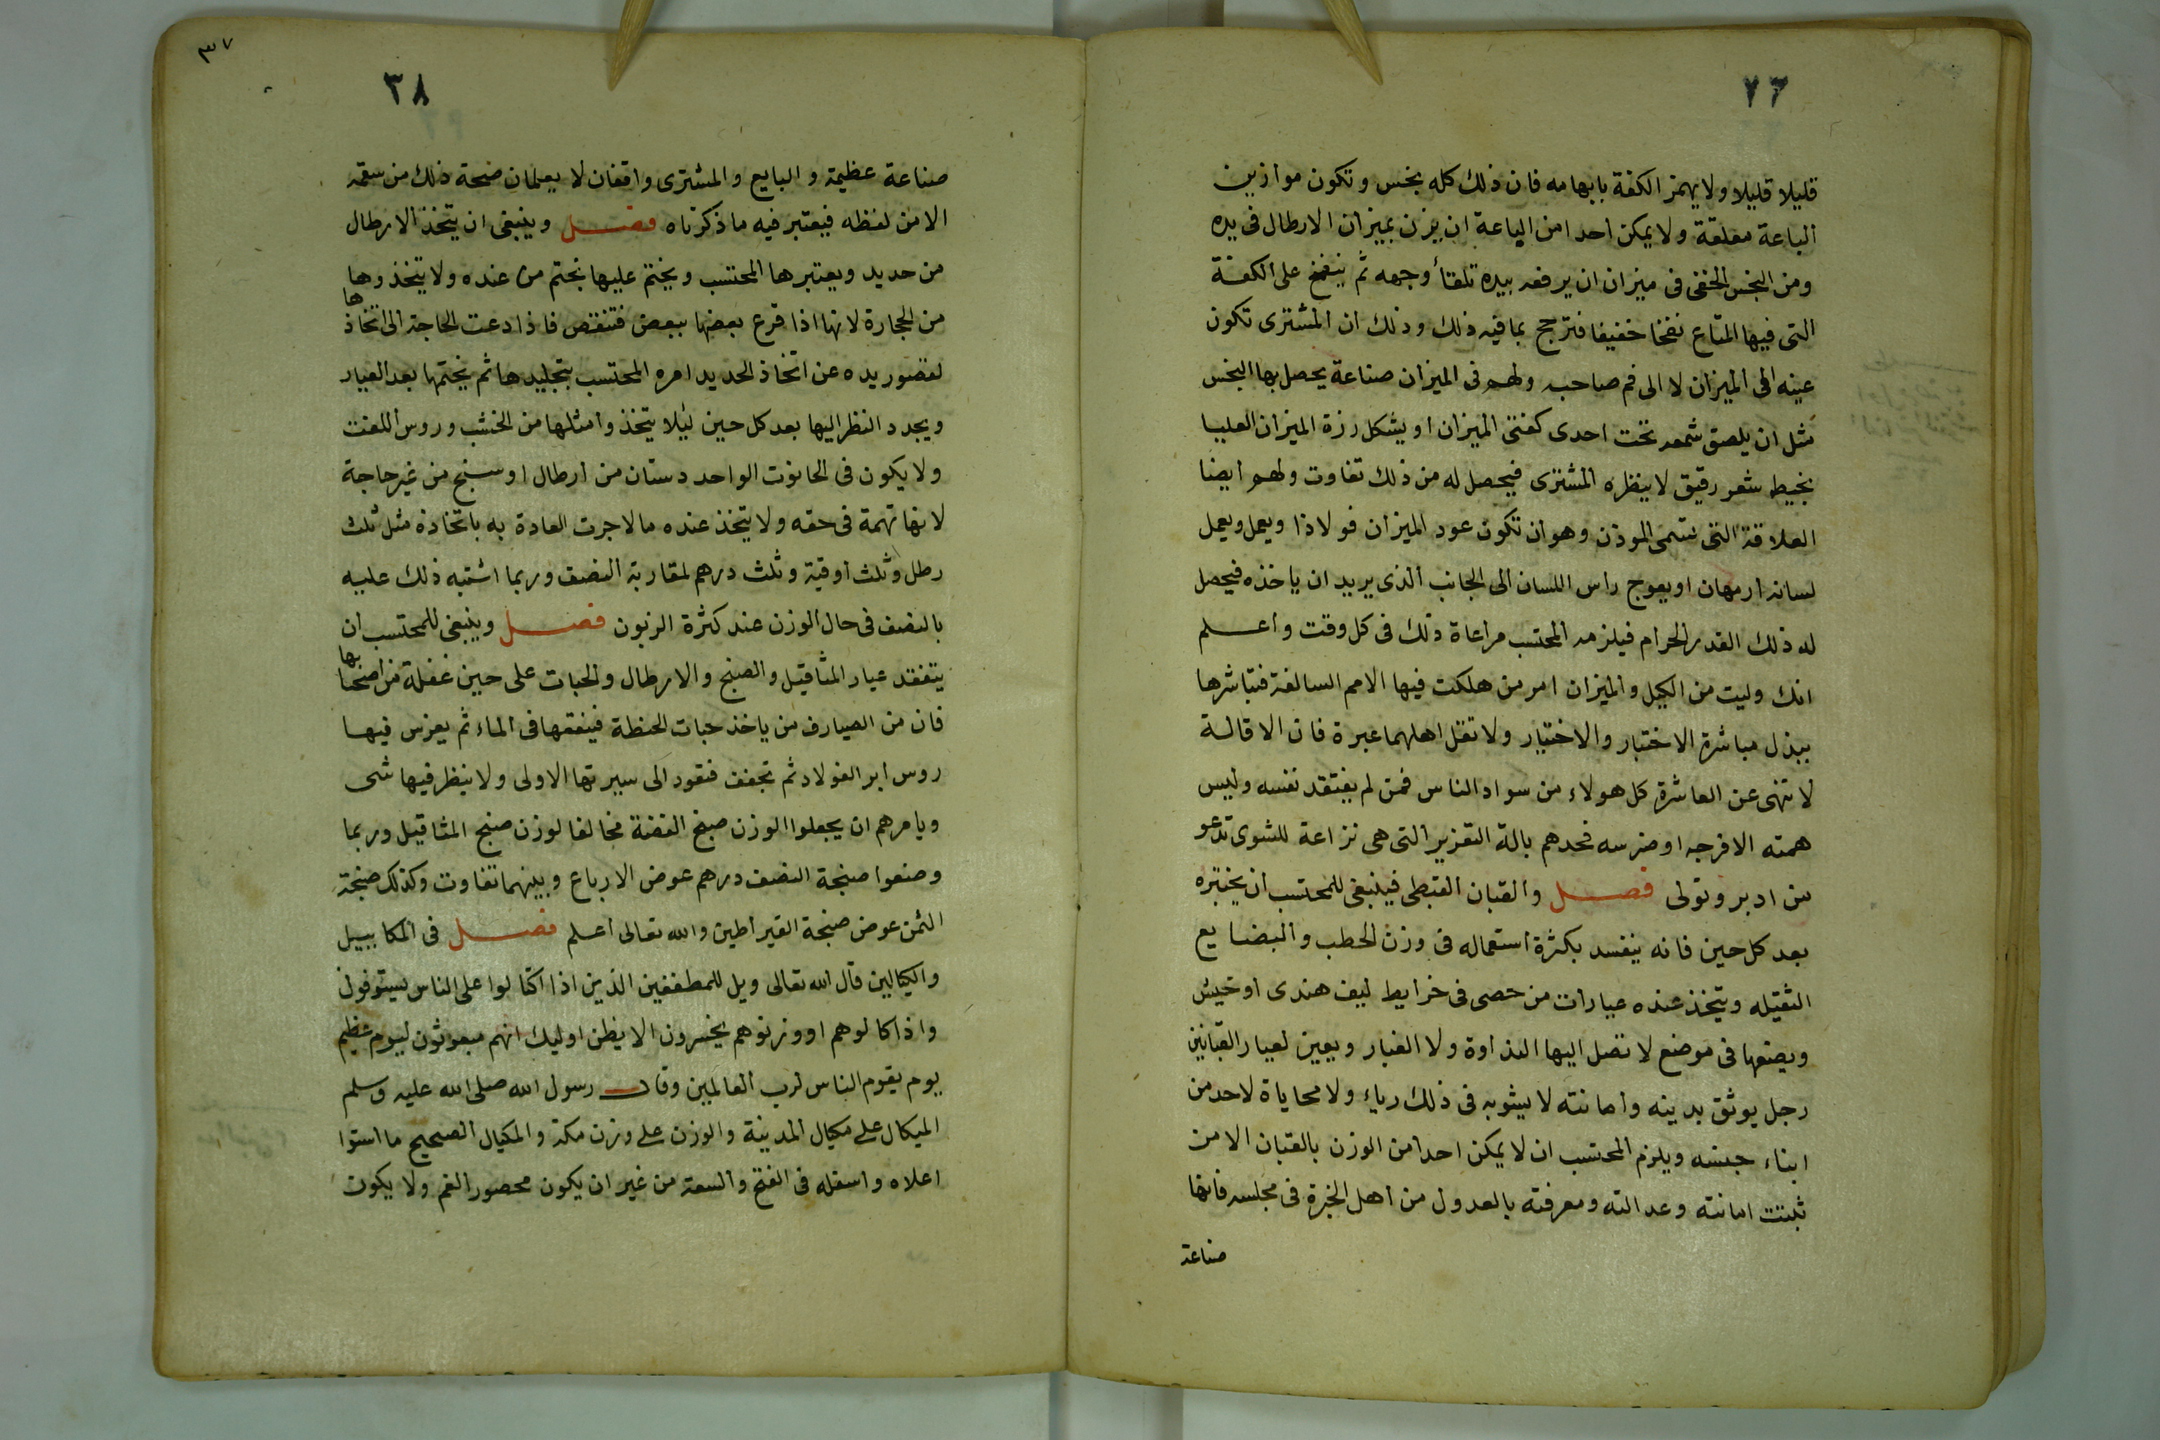 ٧٦
قليلا قليلا ولا يهمز الكفة بابهامه فان ذلك كله بخس وتكون موازين
الباعة معلقة ولا يمكن احدا من الباعة ان يزن بميزان الارطال فى يده
ومن البخس الخفى فى ميزان ان يرفعه بيده تلقأ وجهه ثم ينفخ على الكفة
التى فيها المتاع نفخا خفيفا فترجح بما فيه ذلك وذلك ان المشترى تكون
عينه الى الميزان لا الى فم صاحبه ولهم فى الميزان صناعة يحصل بها البخس
مثل ان يلصق شمعه تحت احدى كفتى الميزان او يشكل رزة الميزان العليا
بخيط شعر رقيق لا ينظره المشترى فيحصل له من ذلك تفاوت ولهم ايضا
العلاقة التى تسمى الموذن وهو ان تكون عود الميزان فولاذا ويعمل ويعمل
لسانه ارمهان او يعوج راس اللسان الى الجانب الذى يريد ان ياخذه فيحصل
له ذلك القدر الحرام فيلزمه المحتسب مراعاة ذلك فى كل وقت واعلم
انك وليت من الكيل والميزان امرين هلكت فيها الامم السالفة فباشرها
ببذل مباشرة الاختبار والاختيار ولا تقل اهلهما عبرة فان الاقالة
لا تنهى عن العاشرة كل هولاء من سواد الناس فمن لم يفتقد نفسه وليس
همته الا فرجه او ضرسه فحدهم بالة التعزير التى هى نزاعة للشوى تدعو
من ادبر وتولى فصل والقبان القبطى فينبغى للمحتسب ان يختبره
بعد كل حين فانه ينفسد بكثرة استعماله فى وزن الحطب والبضايع
الثقيله ويتخذ عنده عيارات من حصى فى خرايط ليف هندى او خيش
ويضعها فى موضع لا تصل اليها النداوة ولا الغبار ويعين لعيار القبانين
رجل يوثق بدينه وامانته لا يشوبه فى ذلك رياء ولا محاياة لاحد من
ابناء جنسه ويلزم المحتسب ان لا يمكن احدا من الوزن بالقبان الا من
ثبتت امانته وعدالته ومعرفته بالعدول من اهل الخبرة فى مجلسه فانها
صناعة
٣٧
٣٨
صناعة عظيمة والبايع والمشترى واقفان لا يعلمان صحة ذلك من سقمه
الا من لفظه فيعتبر فيه ما ذكرناه فصل وينبغى ان يتخذ الارطال
من حديد ويعتبرها المحتسب ويختم عليها بختم من عنده ولا يتخذوها
من الحجارة لانها اذا قرع بعضها ببعض فتنقص فاذا دعت الحاجة الى اتخاذها
لقصور يده عن اتخاذ الحديد امره المحتسب بتجليدها ثم يختمها بعد العيار
ويجدد النظر اليها بعد كل حين ليلا يتخذوا مثلها من الخشب وروس اللفت
ولا يكون فى الحانوت الواحد دستان من ارطال او سنج من غير حاجة
لانها تهمة فى حقه ولا يتخذ عنده ما لا جرت العادة به باتخاذه مثل ثلث
رطل وثلث اوقية وثلث درهم لمقاربة النصف وربما اشتبه ذلك عليه
بالنصف فى حال الوزن عند كثرة الزبون فصل وينبغى للمحتسب ان
يتفقد عيار المثاقيل والصنج والارطال والحبات على حين غفلة من اصحابها
فان من الصيارف من ياخذ حبات الحنطة فينقعها فى الماء ثم يغرس فيها
روس ابر الفولاد ثم تجفف فتعود الى سيرتها الاولى ولا ينظر فيها شى
ويامرهم ان يجعلوا الوزن صنج الفضة مخالفا لوزن صنج المثاقيل وربما
وضعوا صنجة النصف درهم عوض الارباع وبينهما تفاوت وكذلك صنجة
الثمن عوض صنجة القيراطين والله تعالى اعلم فصل فى المكاييل
والكيالين قال الله تعالى ويل للمطففين الذين اذا اكتالوا على الناس يستوفون
واذا كالوهم او وزنوهم يخسرون الا يظن اوليك انهم مبعوثون ليوم عظيم
يوم يقوم الناس لرب العالمين وقال رسول الله صلى الله عليه وسلم
الميكال على مكيال المدينة والوزن على وزن مكة والمكيال الصحيح ما استوا
اعلاه واسفله فى الفتح والسعة من غير ان يكون محصور الفم ولا يكون